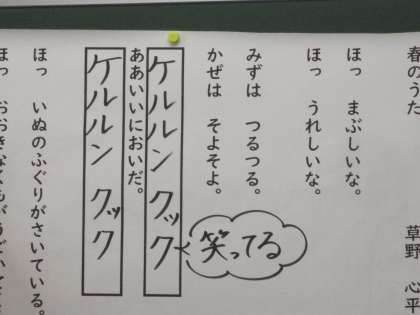 春のうた
草野 心平
ほっ まぶしいな。
ほっ うれしいな。
みずは つるつる。
かぜは そよそよ。
ケルルン クック
笑ってる
ああいいにおいだ。
ケルルン クック
ほっ いぬのふぐりがさいている。
ほっ おおきなくもがうごいてくる